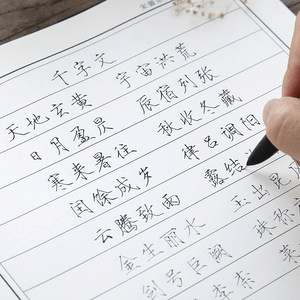 千字文
天地玄黄 宇宙洪荒
日月盈昃 辰宿列张
寒来暑往 秋收冬藏
闰馀成岁 律吕调阳
云腾致雨 露结
金生丽水 玉出昆
剑号巨阙 珠称